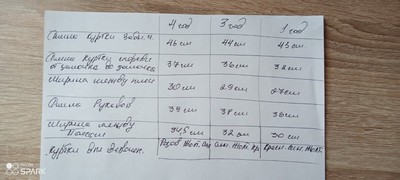 4 год 3 год 1 год
Длина куртки задн. ч. 46 см 44 см 43 см
Длина куртки спереди
от замочка до замочка 37 см 36 см 32 см
Ширина между плеч 30 см 29 см 27 см
Длина Рукавов 39 см 38 см 36 см
Ширина между
Поясом 34,5 см 32 см 30 см
Куртки для девочек.
SHOT ON